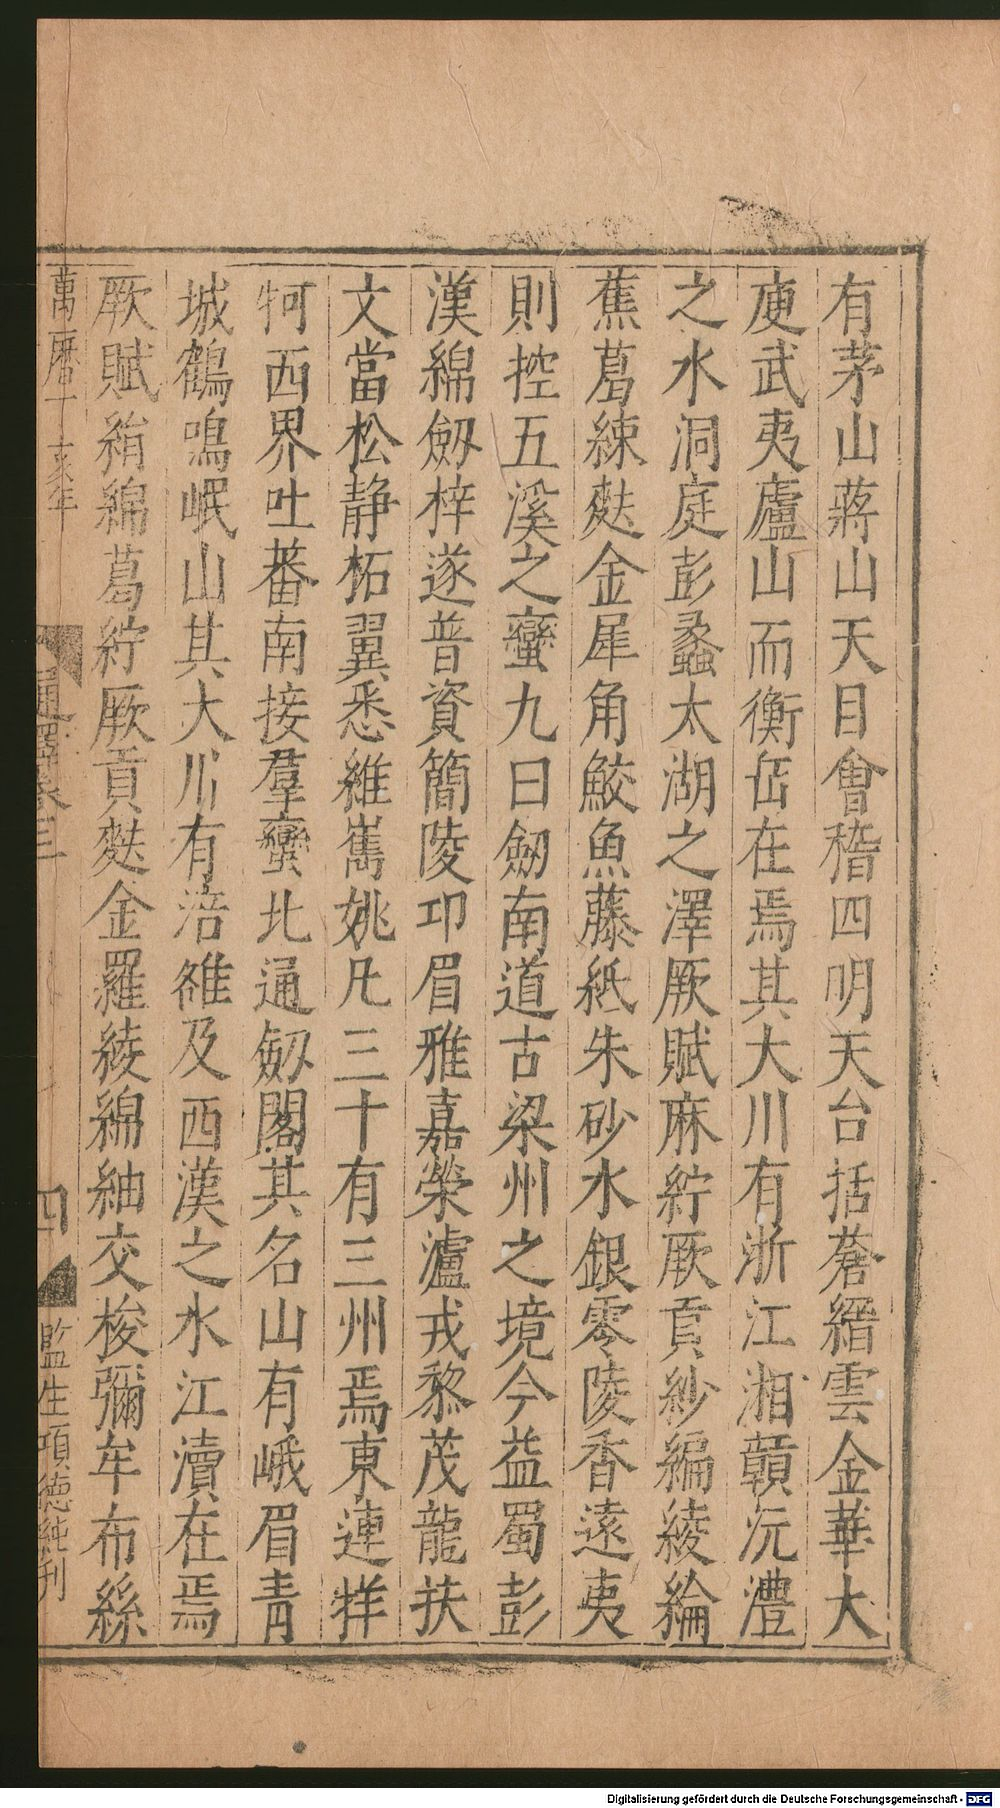 有茅山蔣山天目會稽四明天台括蒼縉雲金華大
庾武夷廬山而衡岳在焉其大川有浙江湘贛沅澧
之水洞庭彭蠡太湖之澤厥賦麻紵厥貢紗編綾綸
蕉葛練麩金犀角鮫魚藤紙朱砂水銀零陵香遠夷
則控五溪之蠻九曰劒南道古梁州之境今益蜀彭
漢綿劒梓遂普資簡陵卭眉雅嘉榮瀘戎黎茂龍扶
文當松靜柘翼悉維嶲姚凡三十有三州焉東連牂
牁西界吐蕃南接羣蠻北通劒閣其名山有峨眉青
城鶴鳴岷山其大川有涪雒及西漢之水江瀆在焉
厥賦絹綿葛紵厥貢麩金羅綾綿紬交梭彌牟布絲
萬曆丁亥年
通譯卷三
四
監生項德純刊
Digitalisierung gefördert durch die Deutsche Forschungsgemeinschaft - DFG